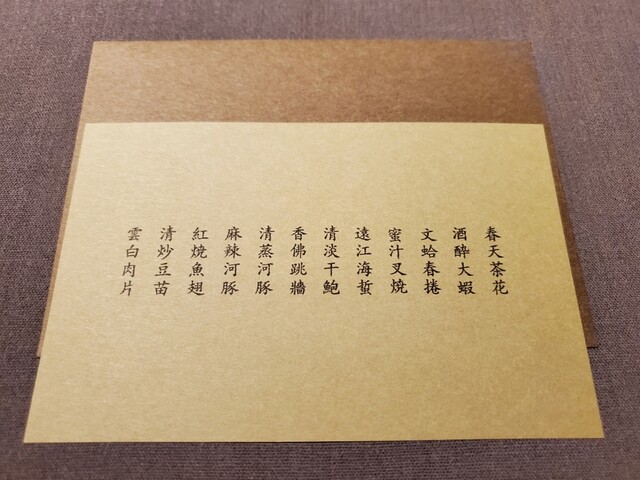 春天茶花
酒醉大蝦
文蛤春捲
蜜汁叉燒
遠江海蜇
清淡干鮑
香佛跳牆
清蒸河豚
麻辣河豚
紅燒魚翅
清炒豆苗
雲白肉片